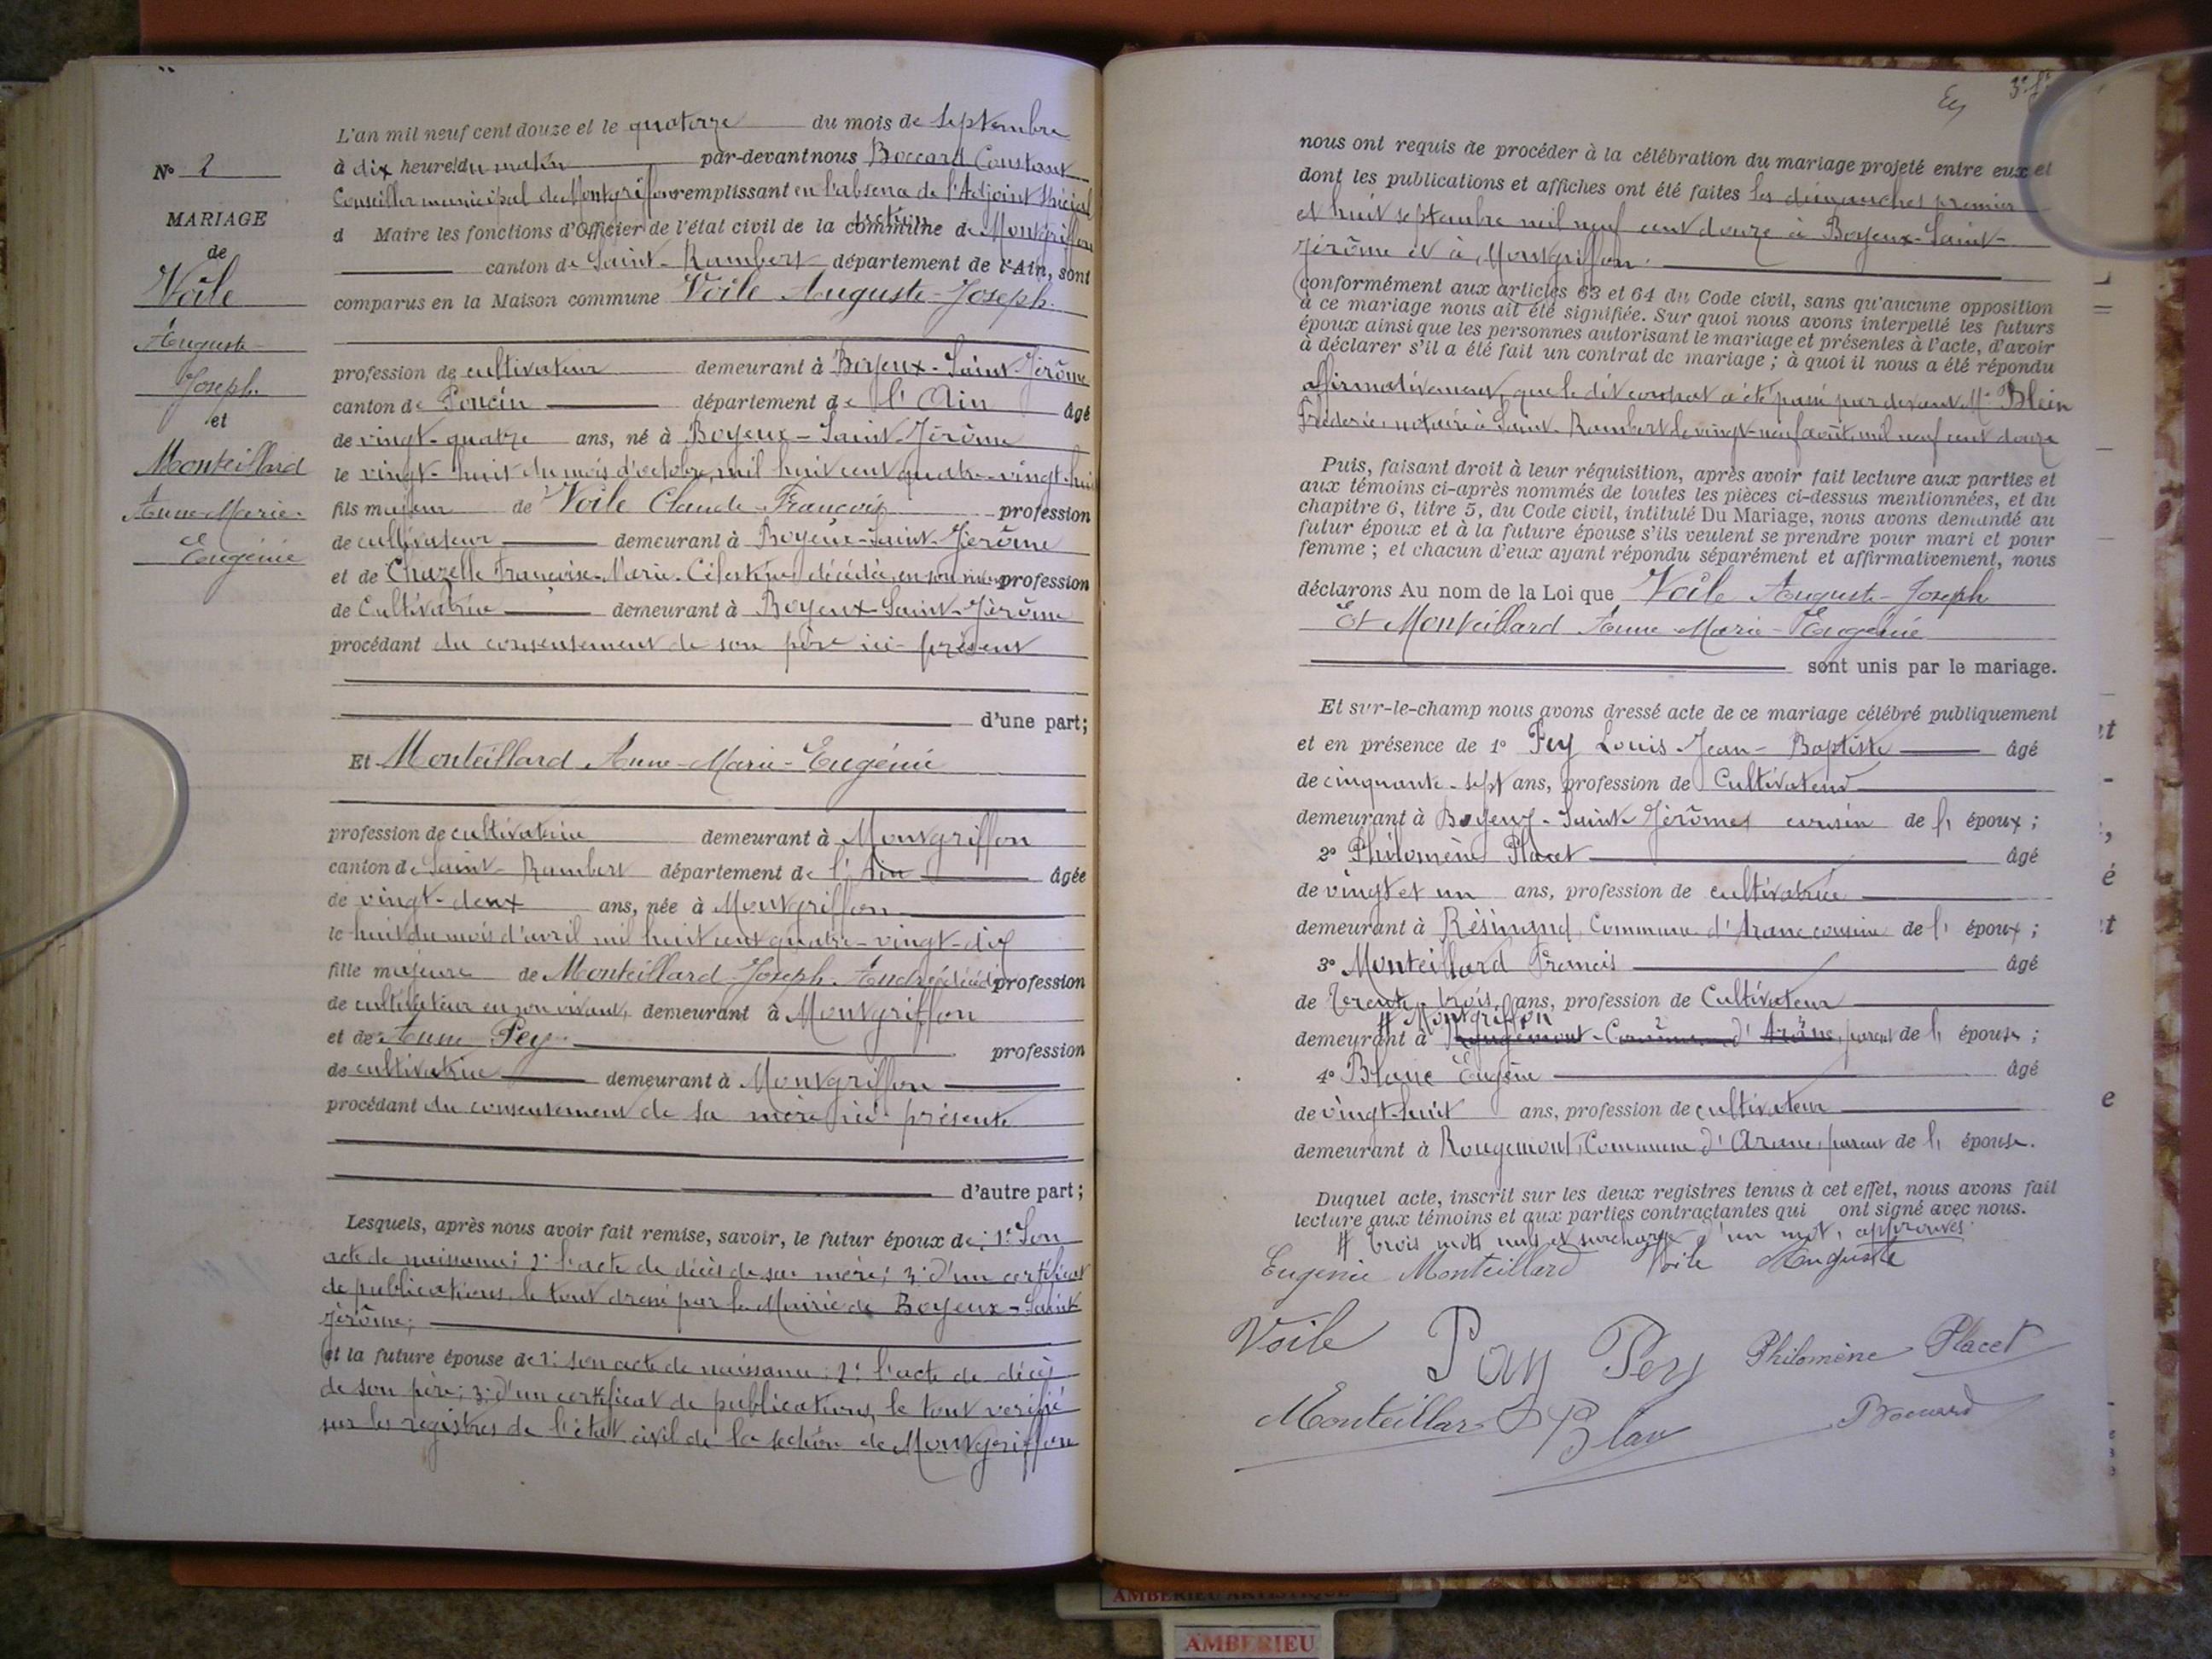 N° 2
MARIAGE
de
Voile
Auguste-
Joseph.
et
Monteillard
Anne-Marie-
Eugénie
L'an mil neuf cent douze et le quatorze du mois de Septembre
à dix heures du matin par-devant nous Boccard Constant
Conseiller municipal de Montgriffon remplissant en l'absence de l'Adjoint Spécial
d Maire les fonctions d'Officier de l'état civil de la commune section de Montgriffon
canton de Saint-Rambert département de l'Ain, sont
comparus en la Maison commune Voile Auguste-Joseph.
profession de cultivateur demeurant à Boyeux-Saint-Jérôme
canton de Poncin département de l'Ain âgé
de vingt-quatre ans, né à Boyeux-Saint-Jérôme
le vingt-huit du mois d'octobre, mil huit cent quatre-vingt-huit
fils majeur de Voile Claude François profession
de cultivateur demeurant à Boyeux-Saint-Jérôme
et de Chazelle Françoise-Marie-Célestine, décédée, en son vivant profession
de Cultivatrice demeurant à Boyeux-Saint-Jérôme
procédant du consentement de son père ici-présent
d'une part;
Et Monteillard Anne-Marie-Eugénie
profession de cultivatrice demeurant à Montgriffon
canton de Saint-Rambert département de l'Ain âgée
de vingt-deux ans, née à Montgriffon
le huit du mois d'avril mil huit cent quatre-vingt-dix
fille majeure de Monteillard Joseph-André décédé profession
de cultivateur en son vivant, demeurant à Montgriffon
et de Anne Pey profession
de cultivatrice demeurant à Montgriffon
procédant du consentement de sa mère ici-présente
d'autre part;
Lesquels, après nous avoir fait remise, savoir, le futur époux de: 1° Son
acte de naissance; 2° l'acte de décès de sa mère; 3° d'un certificat
de publications, le tout dressé par la Mairie de Boyeux-Saint
Jérôme;
et la future épouse de 1° son acte de naissance; 2° l'acte de décès
de son père; 3° d'un certificat de publications, le tout vérifié
sur les registres de l'état civil de la section de Montgriffon
nous ont requis de procéder à la célébration du mariage projeté entre eux et
dont les publications et affiches ont été faites les dimanches premier
et huit septembre mil neuf cent douze à Boyeux-Saint-
Jérôme et à Montgriffon.
conformément aux articles 63 et 64 du Code civil, sans qu'aucune opposition
à ce mariage nous ait été signifiée. Sur quoi nous avons interpellé les futurs
époux ainsi que les personnes autorisant le mariage et présentes à l'acte, d'avoir
à déclarer s'il a été fait un contrat de mariage; à quoi il nous a été répondu
affirmativement, que le dit contrat a été passé par devant Me Blein
Fréderic, notaire à Saint-Rambert le vingt-neuf août mil neuf cent douze
Puis, faisant droit à leur réquisition, après avoir fait lecture aux parties et
aux témoins ci-après nommés de toutes les pièces ci-dessus mentionnées, et du
chapitre 6, titre 5, du Code civil, intitulé Du Mariage, nous avons demandé au
futur époux et à la future épouse s'ils veulent se prendre pour mari et pour
femme; et chacun d'eux ayant répondu séparément et affirmativement, nous
déclarons Au nom de la Loi que Voile Auguste-Joseph
Et Monteillard Anne-Marie-Eugénie
sont unis par le mariage.
Et sur-le-champ nous avons dressé acte de ce mariage célébré publiquement
et en présence de 1° Pey Louis-Jean-Baptiste âgé
de cinquante-sept ans, profession de Cultivateur
demeurant à Boyeux-Saint-Jérôme, cousin de l'époux;
2° Philomène Placet âgé
de vingt et un ans, profession de cultivatrice
demeurant à Résinand, Commune d'Aranc cousine de l'époux;
3° Monteillard Francis âgé
de trente-trois ans, profession de Cultivateur
# Montgriffon
demeurant à Rougemont-Commune d'Aranc, parent de l'épouse;
4° Blanc Eugène âgé
de vingt-huit ans, profession de cultivateur
demeurant à Rougemont, Commune d'Aranc, parent de l'épouse.
Duquel acte, inscrit sur les deux registres tenus à cet effet, nous avons fait
lecture aux témoins et aux parties contractantes qui ont signé avec nous.
# trois mots nuls et surcharge d'un mot, approuvés
Eugenie Monteillard Voile Auguste
Voile Pay Pey Philomène Placet
Monteillard Blanc Boccard
AMBERIEU ARTISTIQUE
AMBERIEU